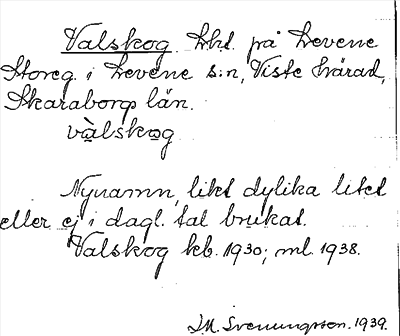 Valskog. Lht. på Levene
Storeg. i Levene s:n, Viste härad,
Skaraborgs län.
vàlskog
Nynamn, likt dylika litet
eller ej i dagl. tal brukat.
Valskog kb. 1930; ml. 1938.
Svenungsson. 1939.